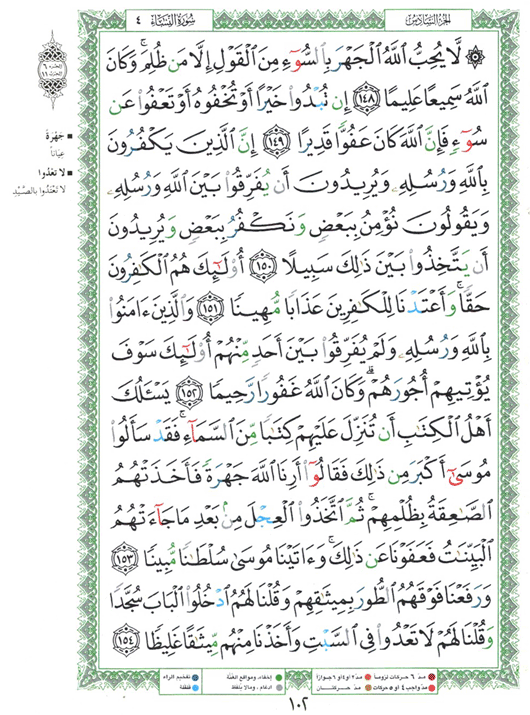 الجزء السادس
سورة النساء ٤
۞ لَّا يُحِبُّ ٱللَّهُ ٱلۡجَهۡرَ بِٱلسُّوٓءِ مِنَ ٱلۡقَوۡلِ إِلَّا مَن ظُلِمَۚ وَكَانَ
ٱللَّهُ سَمِيعًا عَلِيمًا ١٤٨ إِن تُبۡدُواْ خَيۡرًا أَوۡ تُخۡفُوهُ أَوۡ تَعۡفُواْ عَن
سُوٓءٖ فَإِنَّ ٱللَّهَ كَانَ عَفُوّٗا قَدِيرًا ١٤٩ إِنَّ ٱلَّذِينَ يَكۡفُرُونَ
بِٱللَّهِ وَرُسُلِهِۦ وَيُرِيدُونَ أَن يُفَرِّقُواْ بَيۡنَ ٱللَّهِ وَرُسُلِهِۦ
وَيَقُولُونَ نُؤۡمِنُ بِبَعۡضٖ وَنَكۡفُرُ بِبَعۡضٖ وَيُرِيدُونَ
أَن يَتَّخِذُواْ بَيۡنَ ذَٰلِكَ سَبِيلًا ١٥٠ أُوْلَٰٓئِكَ هُمُ ٱلۡكَٰفِرُونَ
حَقّٗاۚ وَأَعۡتَدۡنَا لِلۡكَٰفِرِينَ عَذَابٗا مُّهِينٗا ١٥١ وَٱلَّذِينَ ءَامَنُواْ
بِٱللَّهِ وَرُسُلِهِۦ وَلَمۡ يُفَرِّقُواْ بَيۡنَ أَحَدٖ مِّنۡهُمۡ أُوْلَٰٓئِكَ سَوۡفَ
يُؤۡتِيهِمۡ أُجُورَهُمۡۚ وَكَانَ ٱللَّهُ غَفُورٗا رَّحِيمٗا ١٥٢ يَسۡـَٔلُكَ
أَهۡلُ ٱلۡكِتَٰبِ أَن تُنَزِّلَ عَلَيۡهِمۡ كِتَٰبٗا مِّنَ ٱلسَّمَآءِۚ فَقَدۡ سَأَلُواْ
مُوسَىٰٓ أَكۡبَرَ مِن ذَٰلِكَ فَقَالُوٓاْ أَرِنَا ٱللَّهَ جَهۡرَةٗ فَأَخَذَتۡهُمُ
ٱلصَّٰعِقَةُ بِظُلۡمِهِمۡۚ ثُمَّ ٱتَّخَذُواْ ٱلۡعِجۡلَ مِنۢ بَعۡدِ مَا جَآءَتۡهُمُ
ٱلۡبَيِّنَٰتُ فَعَفَوۡنَا عَن ذَٰلِكَۚ وَءَاتَيۡنَا مُوسَىٰ سُلۡطَٰنٗا مُّبِينٗا ١٥٣
وَرَفَعۡنَا فَوۡقَهُمُ ٱلطُّورَ بِمِيثَٰقِهِمۡ وَقُلۡنَا لَهُمُ ٱدۡخُلُواْ ٱلۡبَابَ سُجَّدٗا
وَقُلۡنَا لَهُمۡ لَا تَعۡدُواْ فِي ٱلسَّبۡتِ وَأَخَذۡنَا مِنۡهُم مِّيثَٰقًا غَلِيظٗا ١٥٤
■ جَهْرَةً
عِيَاناً
■ لا تَعْدُوا
لا تَعْتَدُوا بالصَّيْدِ
مدّ ٦ حركات لزوماً
مدّ ٢ او ٤ او ٦ جوازاً
إخفاء، ومواقع الغُنَّة
تفخيم الراء
مدّ واجب ٤ او ٥ حركات
مدّ حركتان
ادغام، وما لا يُلفظ
قلقلة
١٠٢